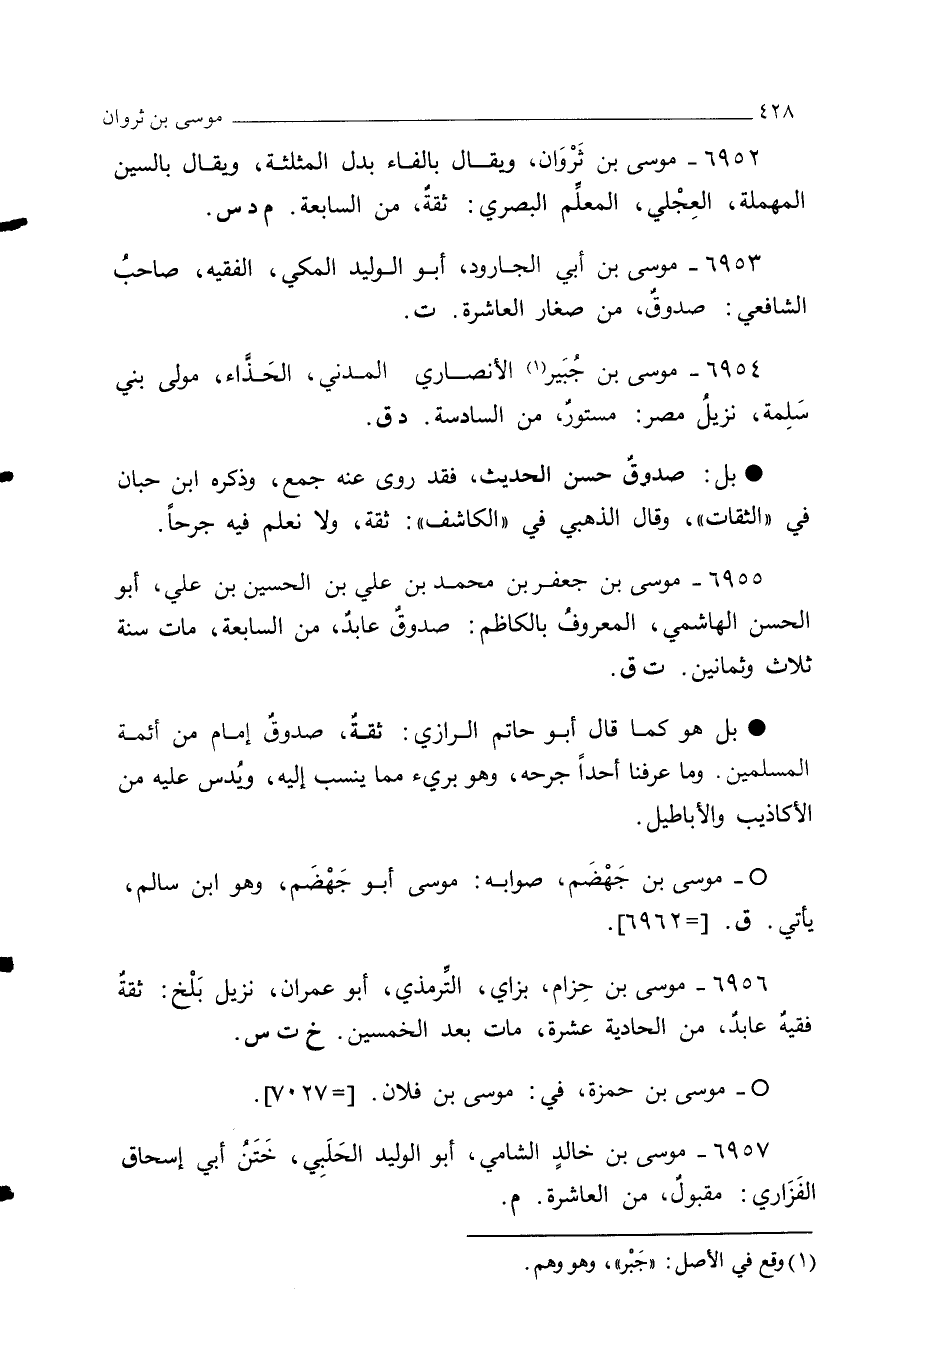 ٤٢٨ موسى بن ثروان
٦٩٥٢ ـ موسى بن ثَرْوَان، ويقال بالفاء بدل المثلثة، ويقال بالسين
المهملة، العِجْلي، المعلِّم البصري: ثقةٌ، من السابعة. م د س.
٦٩٥٣ ـ موسى بن أبي الجارود، أبو الوليد المكي، الفقيه، صاحبُ
الشافعي: صدوقٌ، من صغار العاشرة. ت.
٦٩٥٤ ـ موسى بن جُبَير(١) الأنصاري المدني، الحَذَّاء، مولى بني
سَلِمة، نزيلُ مصر: مستورٌ، من السادسة. د ق.
● بل: صدوقٌ حسن الحديث، فقد روى عنه جمع، وذكره ابن حبان
في «الثقات»، وقال الذهبي في «الكاشف»: ثقة، ولا نعلم فيه جرحاً.
٦٩٥٥ ـ موسى بن جعفر بن محمد بن علي بن الحسين بن علي، أبو
الحسن الهاشمي، المعروفُ بالكاظم: صدوقٌ عابدٌ، من السابعة، مات سنة
ثلاث وثمانين. ت ق.
● بل هو كما قال أبو حاتم الرازي: ثقةٌ، صدوقٌ إمام من أئمة
المسلمين. وما عرفنا أحداً جرحه، وهو بريء مما ينسب إليه، ويُدس عليه من
الأكاذيب والأباطيل.
○ ـ موسى بن جَهْضَم، صوابه: موسى أبو جَهْضَم، وهو ابن سالم،
يأتي. ق. [=٦٩٦٢].
٦٩٥٦ ـ موسى بن حِزام، بزاي، التِّرمذي، أبو عمران، نزيل بَلْخ: ثقةٌ
فقيهٌ عابدٌ، من الحادية عشرة، مات بعد الخمسين. خ ت س.
○ ـ موسى بن حمزة، في: موسى بن فلان. [=٧٠٢٧].
٦٩٥٧ ـ موسى بن خالدٍ الشامي، أبو الوليد الحَلَبِي، خَتَنُ أبي إسحاق
الفَزَاري: مقبولٌ، من العاشرة. م.
(١) وقع في الأصل: «جَبْر»، وهو وهم.